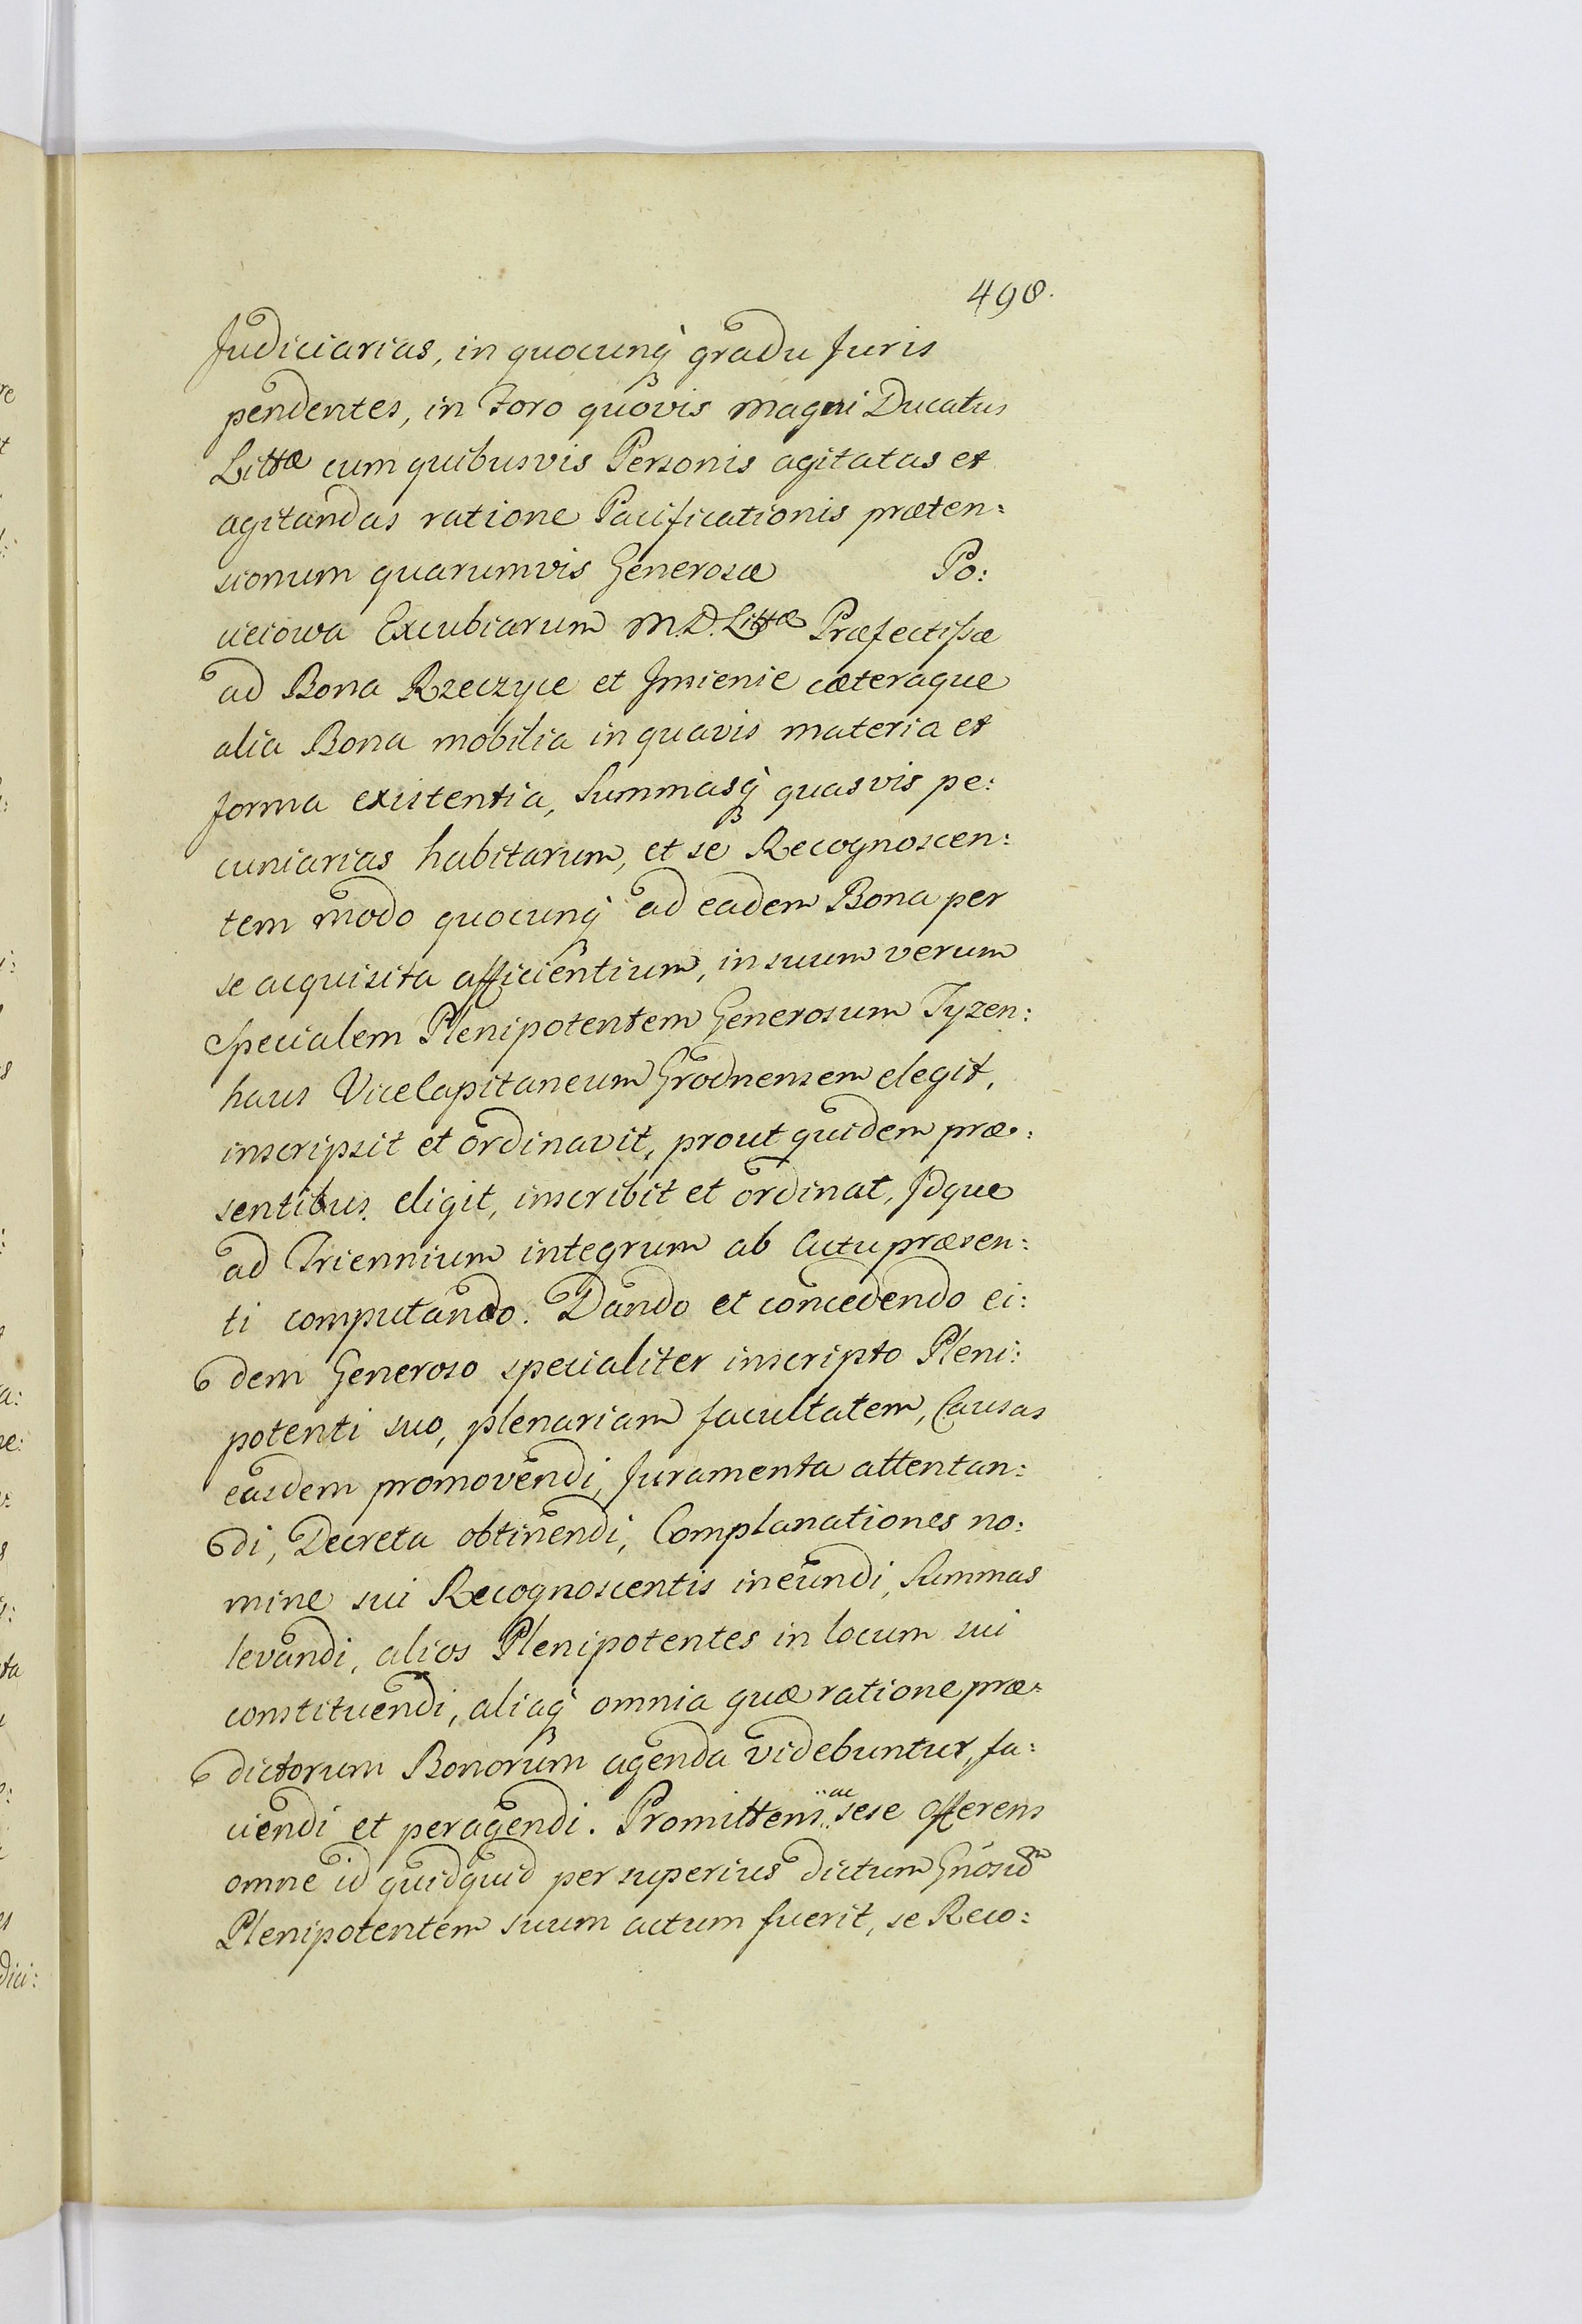 498.
Judiciarias, in quocunq̀ gradu Juris
pendentes, in Foro quovis Magni Ducatus
Littæ cum quibusvis Personis agitatas et
agitandas ratione Pacificationis præten:
sionum quarumvis Generosæ Po:
cieiowa Excubiarum M.D. Littæ Præfectißæ
ad Bona Rzeczyce et Jmienie cæteraque
alia Bona mobilia in quavis materia et
forma existentia, Summasq̀ quasvis pe:
cuniarias habitarum, et se Recognoscen:
tem modo quocunq̀ ad eadem Bona per
se acquisita afficientium, in suum verum
Specialem Plenipotentem Generosum Tyzen:
haus ViceCapitaneum Grodnensem elegit,
inscripsit et ordinavit, prout quidem præ:
sentibus eligit, inscribit et ordinat, Jdque
ad Triennium integrum ab Actu præsen:
ti computando. Dando et concedendo ei:
dem Generoso specialiter inscripto Pleni:
potenti suo, plenariam facultatem, Causas
easdem promovendi, Juramenta attentan:
di, Decreta obtinendi, Complanationes no:
mine sui Recognoscentis ineundi, Summas
levandi, alios Plenipotentes in locum sui
constituendi, aliaq̀ omnia quæ ratione præ:
dictorum Bonorum agenda videbuntur, fa:
ciendi et peragendi. Promittens ac sese offerens
omne id quidquid per superius dictum Gnosũ
Plenipotentem suum actum fuerit, se Reco: